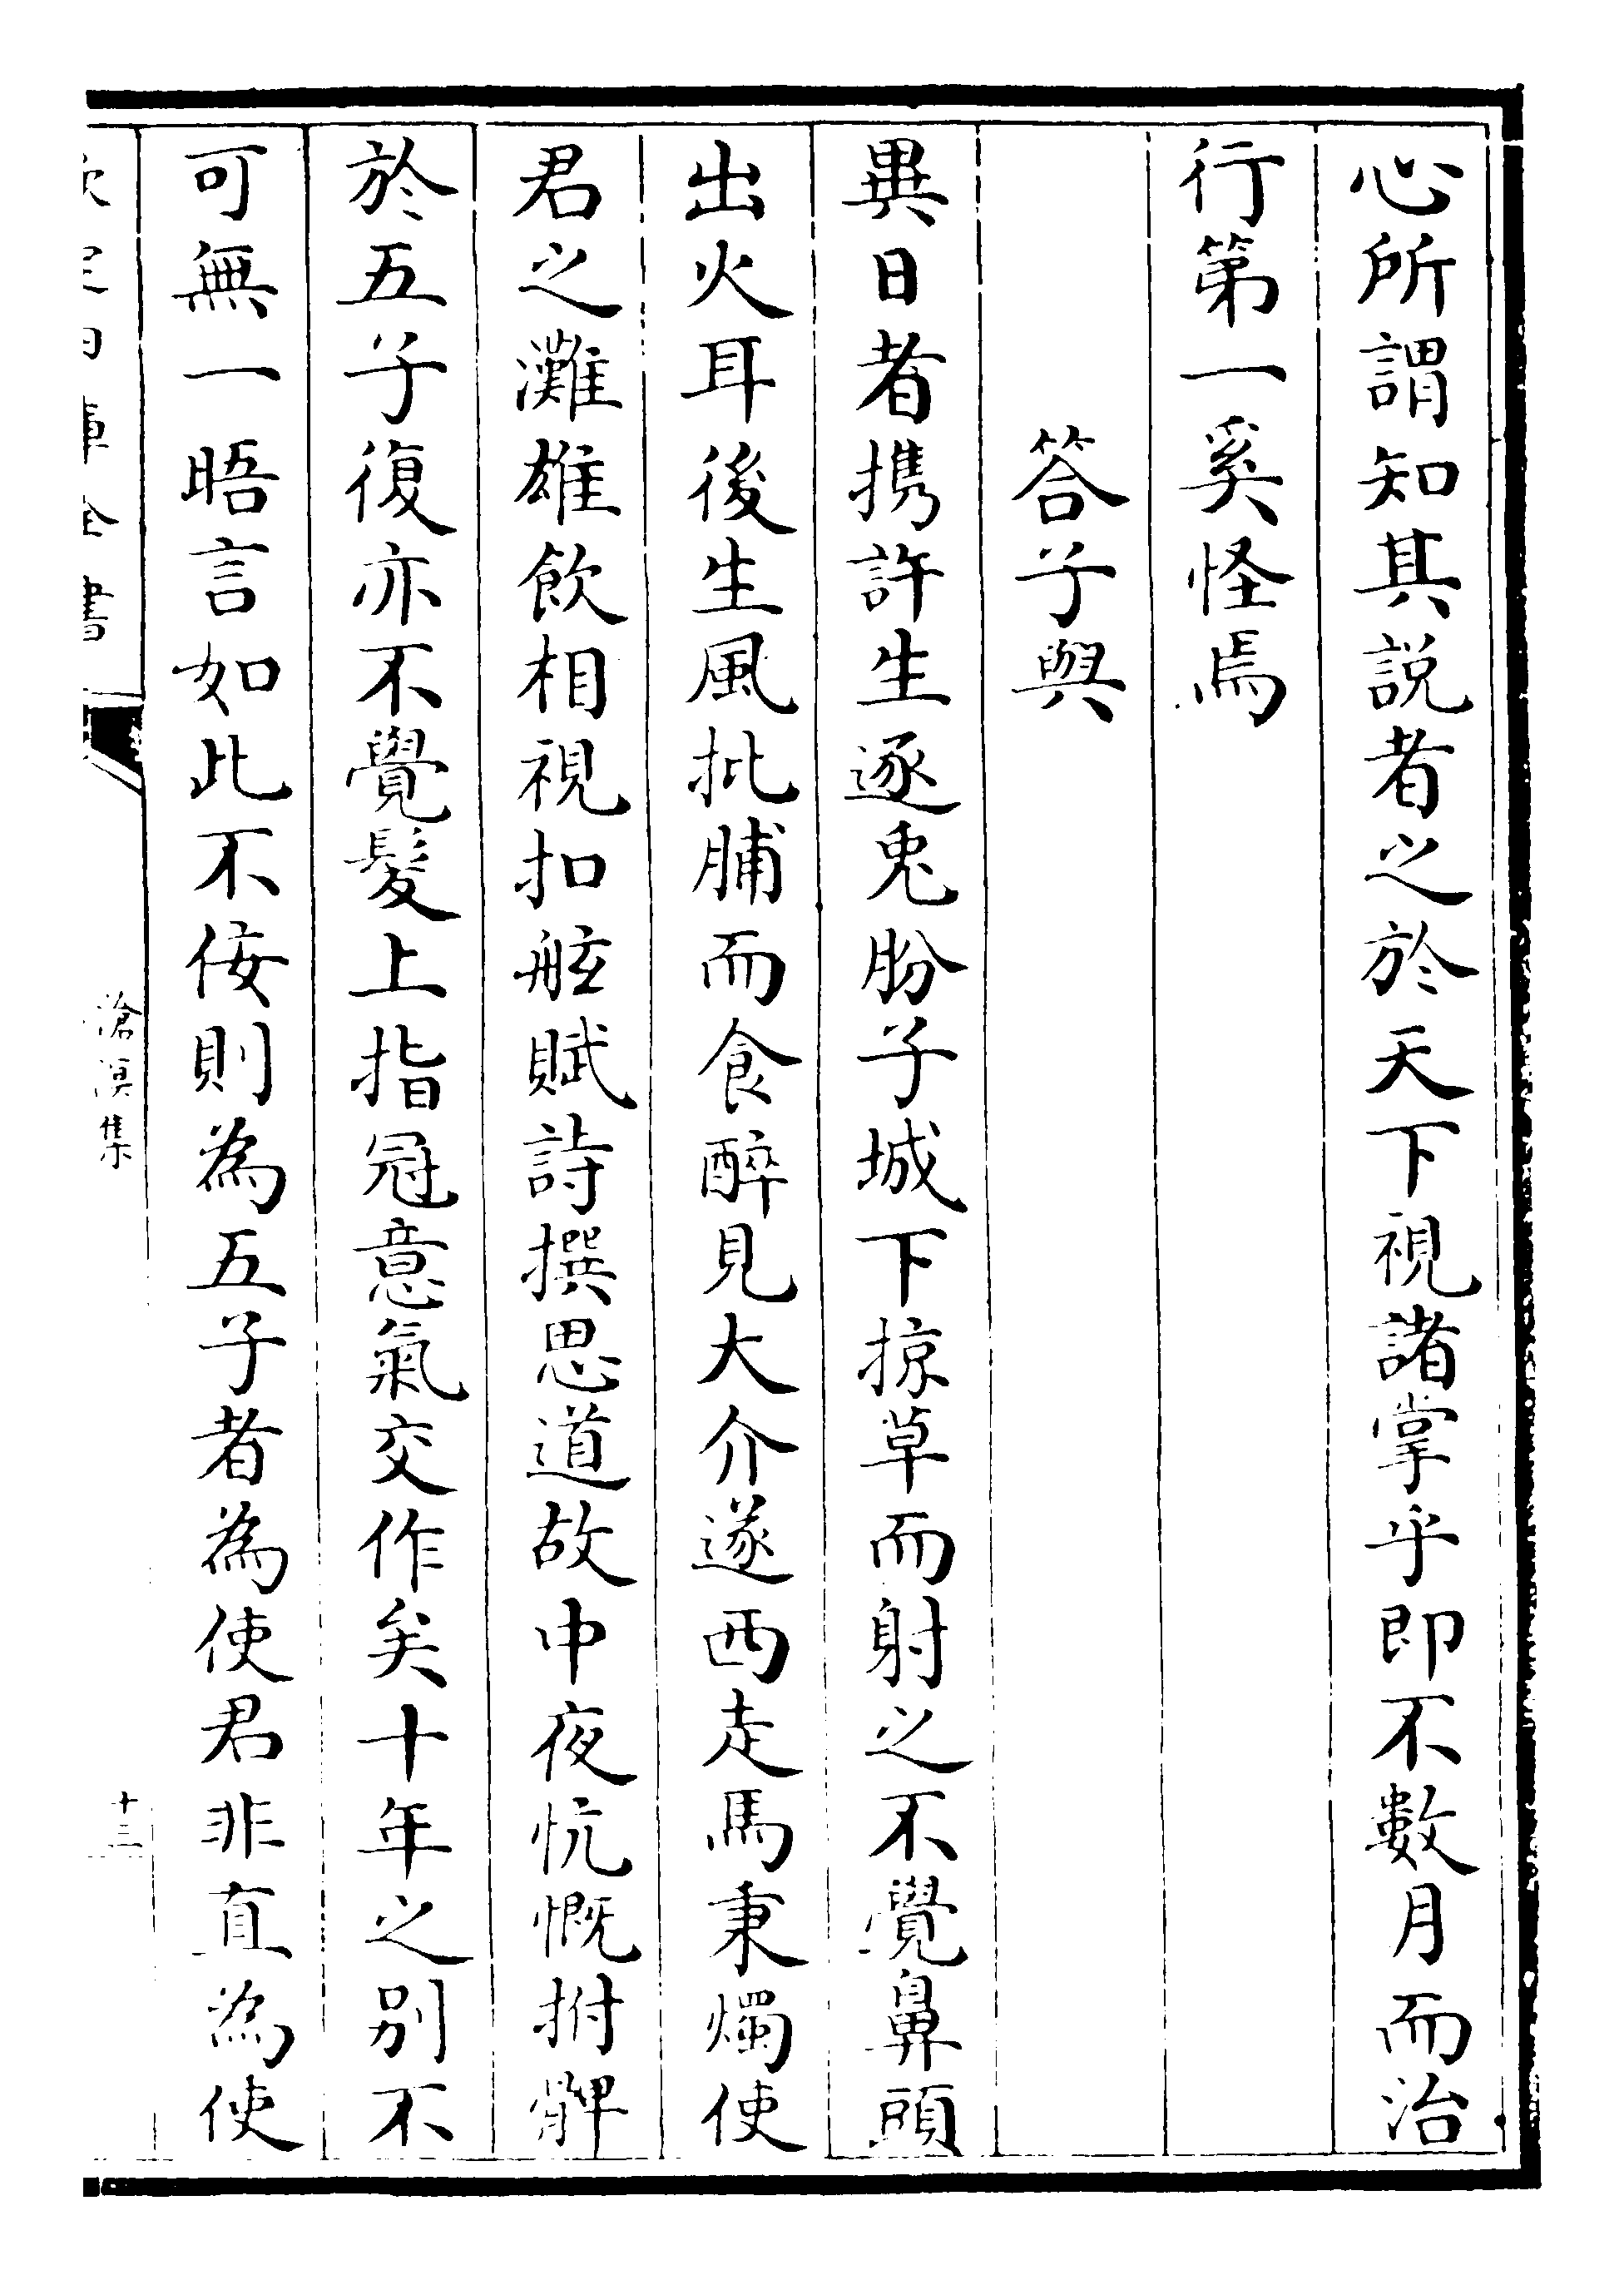 心所謂知其説者之於天下視諸掌乎即不數月而治
行第一奚怪焉
答子與
異日者携許生逐兎朌子城下掠草而射之不覺鼻頭
出火耳後生風批脯而食醉見大介遂西走馬秉燭使
君之灘雄飲相視扣舷賦詩撰思道故中夜忼慨拊髀
於五子復亦不覺髮上指冠意氣交作矣十年之别不
可無一晤言如此不佞則為五子者為使君非直為使
欽定四庫全書
滄溟集
十三